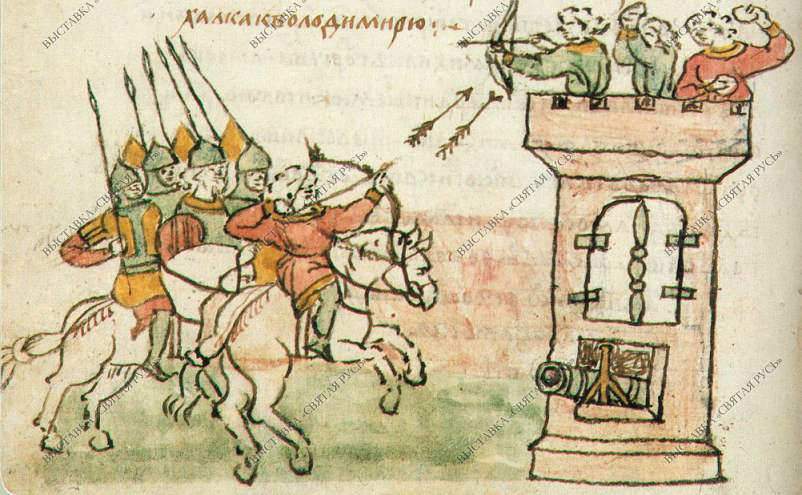 халкакволодимирю
ВЫСТАВКА
ВЫСТАВКА
ВЫСТАВКА
ВЫСТАВКА
ВЫСТАВКА «СВЯТАЯ РУСЬ»
ВЫСТАВКА «СВЯТАЯ РУСЬ»
ВЫСТАВКА «СВЯТАЯ РУСЬ»
ВЫСТАВКА «СВЯТАЯ РУСЬ»
ВЫСТАВКА «СВЯТАЯ РУСЬ»
ВЫСТАВКА «СВЯТАЯ РУСЬ»
ВЫСТАВКА «СВЯТАЯ РУСЬ»
ВЫСТАВКА «СВЯТАЯ РУСЬ»